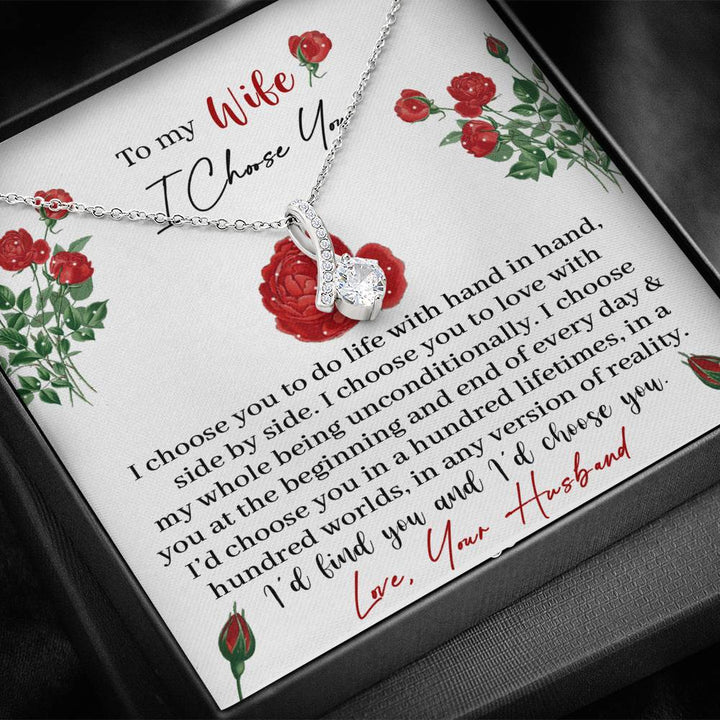 To my Wife
I Choose You
I choose you to do life with hand in hand,
side by side. I choose you to love with
my whole being unconditionally. I choose
you at the beginning and end of every day &
I'd choose you in a hundred lifetimes, in a
hundred worlds, in any version of reality.
I'd find you and I'd choose you.
Love, Your Husband